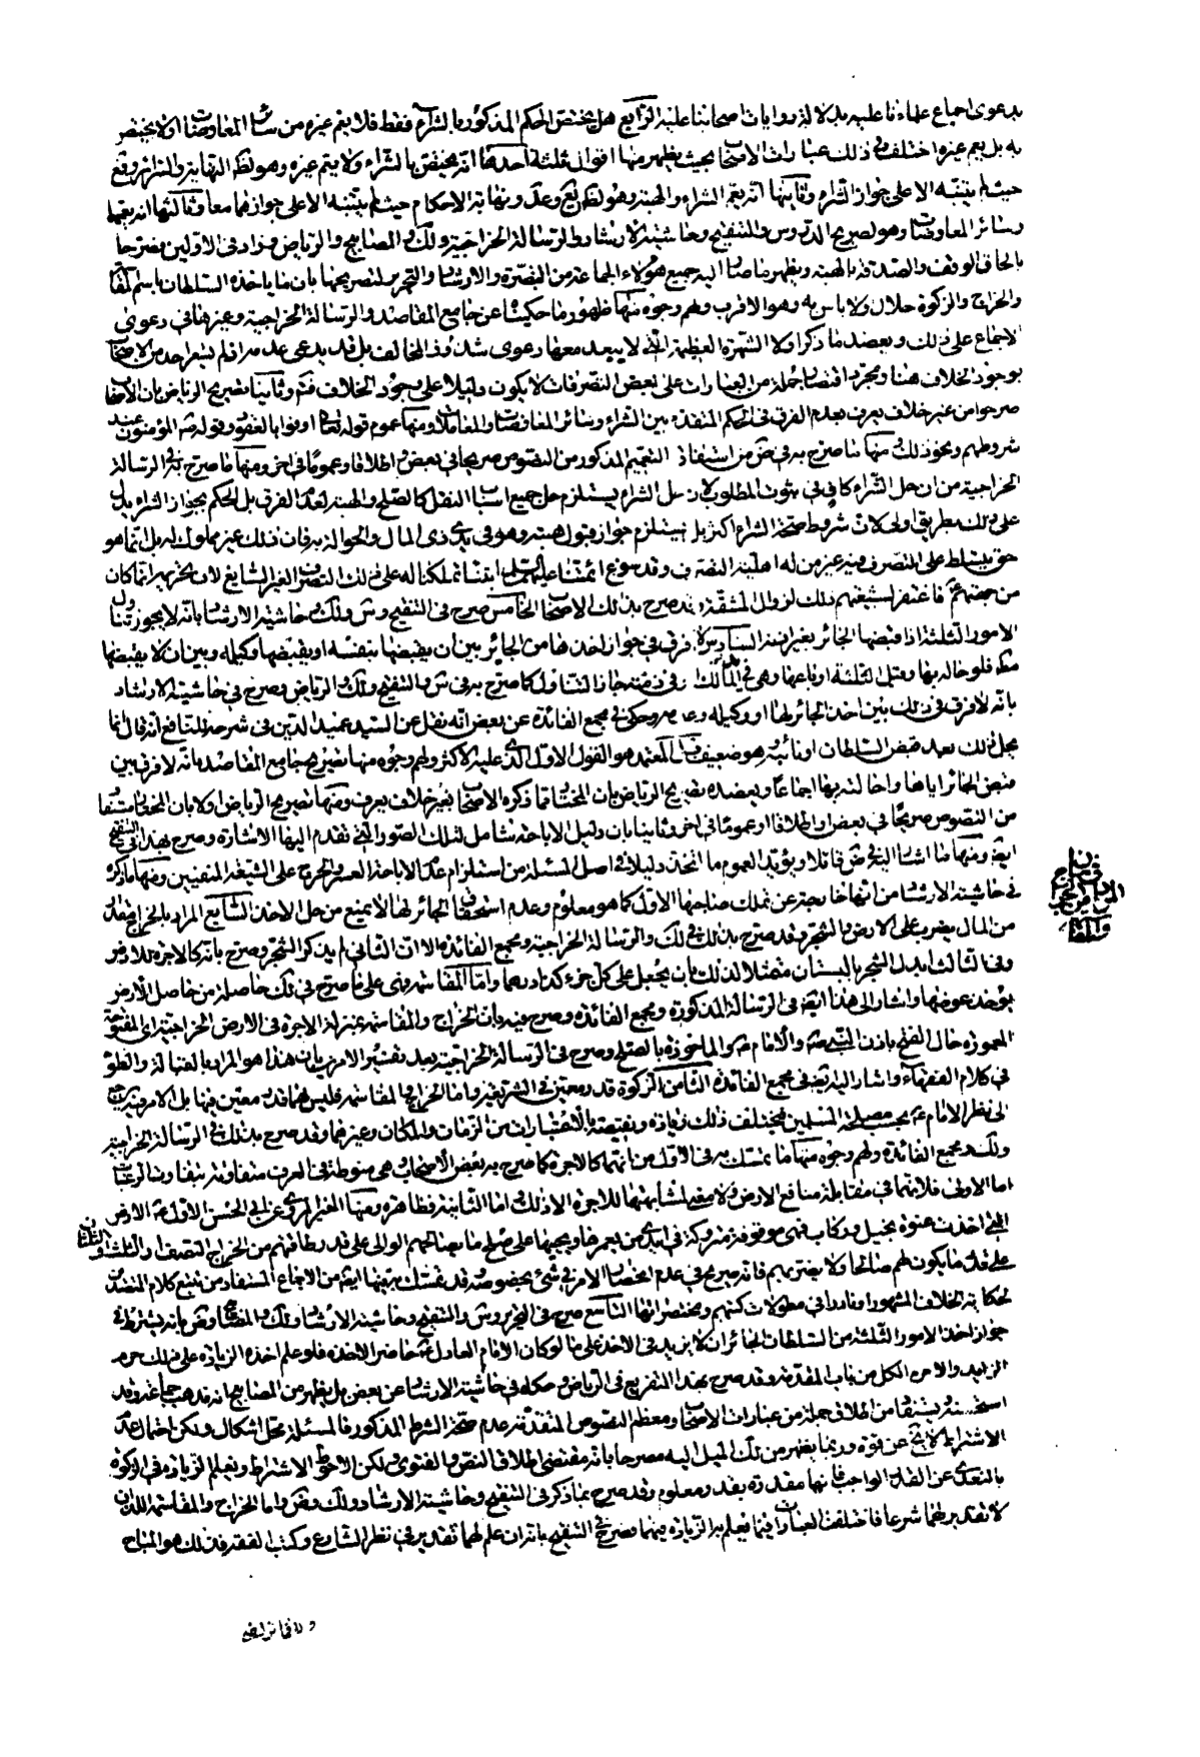 بدعوى اجماع علمائنا عليه بدلالة روايات اصحابنا عليه الرابع هل يختص الحكم المذكور بالشراء فقط فلا يعم غيره من سائر المعاوضات اولا يختص
به بل يعم غيره اختلف في ذلك عبارات الاصحاب بحيث يظهر منها اقوال ثلثة احدها انه يختص بالشراء ولا يعم غيره وهو لظ النهاية والسرائر وقع
حيث لم ينبه الا على جواز الشراء وثانيها انه يعم الشراء والهبة وهو لظ يع وعد ونهاية الاحكام حيث لم ينبه الا على جوازهما معا وثالثها انه يعمها
وسائر المعاوضات وهو لصريح الدروس والتنقيح وحاشية الارشاد والرسالة الخراجية ولك والمصابيح والرياض وزاد في الاولين مصرحا
بالحاق الوقف والصدقة بالهبة ويظهر ما صار اليه جميع هؤلاء الجماعة من التبصرة والارشاد والتحرير لتصريحها بان ما ياخذه السلطان باسم المقا
والخراج والزكوة حلال ولا باس به وهو الاقرب ولهم وجوه منها ظهور ما حكيناه عن جامع المقاصد والرسالة الخراجية وغيرهما في دعوى
الاجماع على ذلك ويعضد ما ذكر اولا الشهرة العظيمة التي لا يبعد معها دعوى شذوذ المخالف بل قد يدعى عدمه اذ لم يشعر احد من الاصحاب
بوجود الخلاف هنا ومجرد اقتصار جملة من العبارات على بعض التصرفات لا يكون دليلا على وجود الخلاف فتم وثانيا تصريح الرياض بان الاصحاب
صرحوا من غير خلاف يعرف بعدم الفرق في الحكم المتقدم بين الشراء وسائر المعاوضات والمعاملات ومنها عموم قوله تعالى اوفوا بالعقود وقوله ص المؤمنون عند
شروطهم ونحو ذلك ومنها ما صرح به في ض من استفادة التعميم المذكور من النصوص صريحا في بعض واطلاقا وعموما في اخر ومنها ما صرح به في الرسالة
الخراجية من ان حل الشراء كاف في ثبوت المطلوب لان حل الشراء يستلزم حل جميع اسباب النقل كالصلح والهبة لعدم الفرق بل الحكم بجواز الشراء يدل
على ذلك بطريق اولى لان شروط صحة الشراء اكثر بل يستلزم جواز قبول هبته وهو في يد ذي المال والحوالة به فان ذلك غير مملوك له بل انما هو
حق يسلط على التصرف فيه غير من له اهلية التصرف وقد سوغ ائمتنا عليهم السلام ابتناء تملكنا له على ذلك التصرف الغير السايغ لان تحريمه انما كان
من جهتهم ع فاغتفر لشيعتهم ذلك لزوال المشقة وقد صرح بذلك الاصحاب الخامس صرح في التنقيح وس ولك وحاشية الارشاد بانه لا يجوز تناول
الامور الثلثة اذا قبضها الجائر بغير اذنه السادس لا فرق في جواز اخذها من الجائر بين ان يقبضها بنفسه او يقبضها وكيله وبين ان لا يقبضها
فلو احاله بها وقبل الثلثة او باعها وهي في يد المالك او في ذمته جاز التناول كما صرح به في س والتنقيح ولك والرياض وصرح في حاشية الارشاد
بانه لا فرق في ذلك بين اخذ الجائر لها او وكيله وحكى في مجمع الفائدة عن بعض انه نقل عن السيد عميد الدين في شرحه للنافع انه قال انما
يحل ذلك بعد قبض السلطان او نائبه وهو ضعيف بل المعتمد هو القول الاول الذي عليه الاكثر ولهم وجوه منها تصريح جامع المقاصد بانه لا فرق بين
قبض الجائر اياها واحالته بها اجماعا ويعضده تصريح الرياض بان المختار مما ذكره الاصحاب بغير خلاف يعرف ومنها تصريح الرياض اولا بان المختار مستفاد
من النصوص صريحا في بعض واطلاقا او عموما في اخر وثانيا بان دليل الاباحة شامل لتلك الصور التي تقدم اليها الاشارة وصرح بهذا في التنقيح
ايضا ومنها ما اشار اليه في ض قائلا ويؤيد العموم ما اتخذ دليلا في اصل المسئلة من استلزام عدم الاباحة العسر والحرج على الشيعة المنفيين ومنها ما ذكره
في حاشية الارشاد من انها خارجة عن ملك صاحبها الاول كما هو معلوم وعدم استحقاق الجائر لها لا يمنع من حل الاخذ السابع المراد بالخراج مقدار
من المال يضرب على الارض والشجر وقد صرح بذلك في لك والرسالة الخراجية ومجمع الفائدة الا ان الثاني لم يذكر الشجر وصرح بانه كالاجرة للارض
وفي الثالث ابدل الشجر بالبستان متمثلا لذلك بان يجعل على كل جزء كذا درهما واما المقاسمة فهي على ما صرح في لك حاصلة من حاصل الارض
يؤخذ عوضها واشار الى هذا ايضا في الرسالة المذكورة ومجمع الفائدة وصرح فيه بان الخراج والمقاسمة بمنزلة الاجرة في الارض الخراجية اي المفتوحة
المعمورة حال الفتح باذن النبي ص والامام ع والماخوذة بالصلح وصرح في الرسالة الخراجية بعد تفسير الامرين بان هذا هو المراد بالقبالة والطسوق
في كلام الفقهاء واشار اليه ايضا في مجمع الفائدة الثامن الزكوة قدر معين في الشريعة واما الخراج والمقاسمة فليس لهما قدر معين فيها بل الامر فيه يرجع
الى نظر الامام ع بحسب مصلحة المسلمين فيختلف ذلك زيادة ونقيصة بالاعتبارات من الزمان والمكان وغيرهما وقد صرح بذلك في الرسالة الخراجية
ولك ومجمع الفائدة ولهم وجوه منها ما تمسك به في الاول من انهما كالاجرة كما صرح به بعض الاصحاب وهي منوطة في العرف متفاوتة بتفاوت الرغبات
اما الاولى فلانها في مقابلة منافع الارض ولا معنى لمشابهتها للاجرة الا ذلك اما الثانية فظاهرة ومنها الخبر المروي عن ابي الحسن الاول ع الارض
التي اخذت عنوة بخيل وركاب فهي موقوفة متروكة في ايدي من يعمرها ويحييها على صلح ما يصالحهم الوالي على قدر طاقتهم من الخراج النصف والثلث والثلثان
على قدر ما يكون لهم صالحا ولا يضر بهم فانه صريح في عدم انحصار الامر في شيء بخصوصه وقد يتمسك بتتبعها ايضا من الاجماع المستفاد من تتبع كلام المتصدين
لحكاية الخلاف المشهور او نادرا في مطولات كتبهم ومختصراتها التاسع صرح في التحرير وس والتنقيح وحاشية الارشاد ولك والمصابيح وض بانه يشترط في
جواز اخذ الامور الثلثة من السلطان الجائر ان لا يزيد في الاخذ على ما لو كان الامام العادل ع حاضرا لاخذه فلو علم اخذه الزيادة على ذلك حرم
الزايد والا حرم الكل من باب المقدمة وقد صرح بهذا التفريع في الرياض وحكاه في حاشية الارشاد عن بعض بل يظهر من المصابيح انه مذهب جماعة وقد
استحسنه ويستفاد من اطلاق جملة من عبارات الاصحاب ومعظم النصوص المتقدمة عدم صحة الشرط المذكور فالمسئلة محل اشكال ولكن احتمال عدم
الاشتراط لا يخ عن قوة وربما يظهر من لك الميل اليه مصرحا بانه مقتضى اطلاق النص والفتوى لكن الاحوط الاشتراط ويعلم الزيادة في الزكوة
بالتعدي عن القدر الواجب فانها مقدرة بقدر معلوم وقد صرح بما ذكر في التنقيح وحاشية الارشاد ولك وض واما الخراج والمقاسمة اللذان
لا تقدير لهما شرعا فاختلفت العبارات فيما يعلم به الزيادة فيهما فصرح في التنقيح بانه ان علم لهما تقدير في نظر الشارع وكتب الفقه فذلك هو المباح